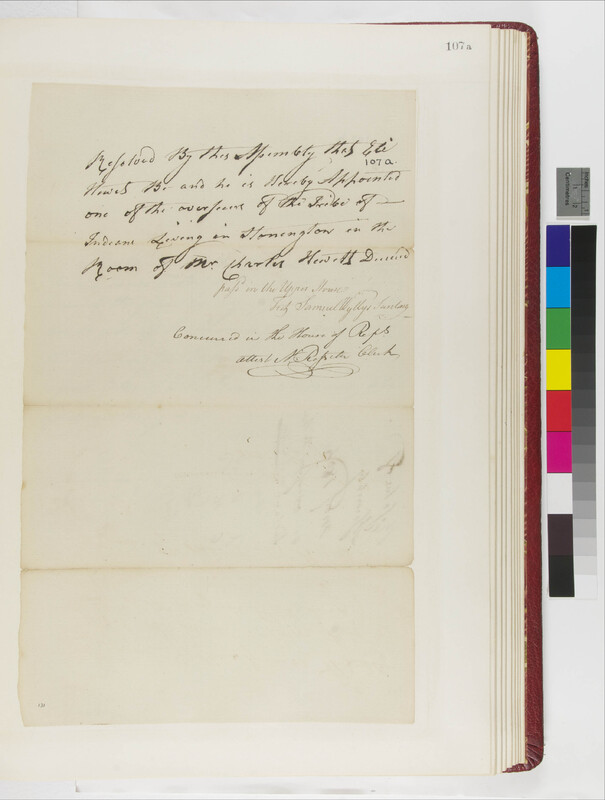 107a
Resolved By this Assembly that Eli
107a.
Hewet Be and he is Hereby Appointed
one of the overseers of the Tribe of
Indians Living in Stonington in the
Room of Mr. Charles Hewett Deceasd
pass'd in the Upper House
Test Samuel Wyllys Secretary
Concurred in the House of Reps
attest N. Rossiter Clerk